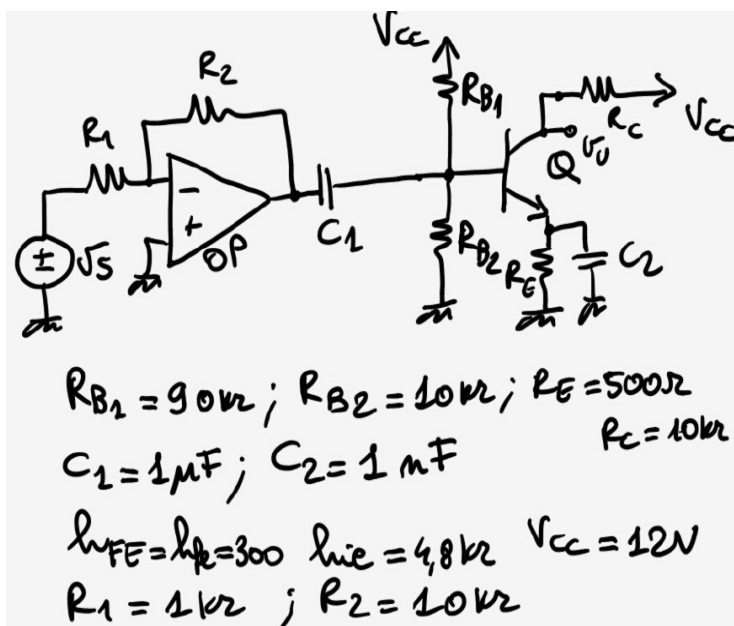 V_CC
R_2
R_B1
R_1
R_C
V_CC
-
Q
v_U
+
C_1
± v_S
OP
R_B2
R_E
C_2
R_B1 = 90kΩ ; R_B2 = 10kΩ ; R_E = 500Ω
R_C = 10kΩ
C_1 = 1μF ; C_2 = 1nF
h_FE = h_fe = 300 h_ie = 4,8kΩ V_CC = 12V
R_1 = 1kΩ ; R_2 = 10kΩ